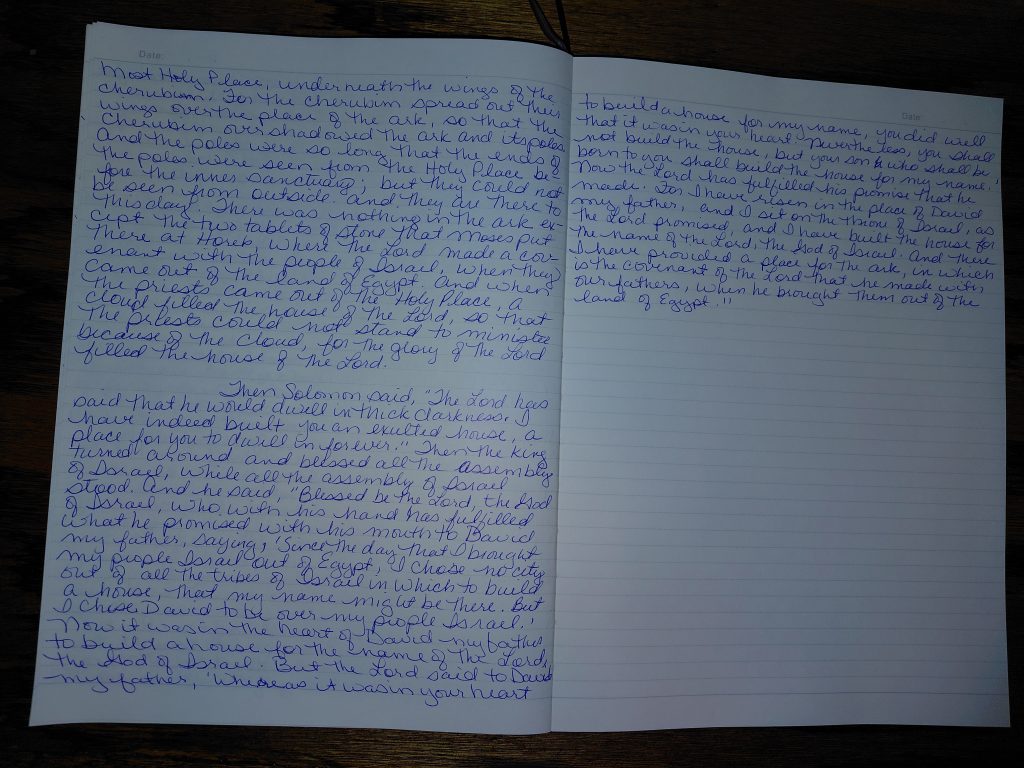 Date:
Most Holy Place, underneath the wings of the
cherubim. For the cherubim spread out their
wings over the place of the ark, so that the
cherubim overshadowed the ark and its poles.
And the poles were so long that the ends of
the poles were seen from the Holy Place be-
fore the inner sanctuary; but they could not
be seen from outside. And they are there to
this day. There was nothing in the ark ex-
cept the two tablets of stone that Moses put
there at Horeb, where the Lord made a cov-
enant with the people of Israel, when they
came out of the land of Egypt. And when
the priests came out of the Holy Place, a
cloud filled the house of the Lord, so that
the priests could not stand to minister
because of the cloud, for the glory of the Lord
filled the house of the Lord.
Then Solomon said, "The Lord has
said that he would dwell in thick darkness. I
have indeed built you an exulted house, a
place for you to dwell in forever." Then the king
turned around and blessed all the assembly
of Israel, while all the assembly of Israel
stood. And he said, "Blessed be the Lord, the God
of Israel, who with his hand has fulfilled
what he promised with his mouth to David
my father, saying, 'Since the day that I brought
my people Israel out of Egypt, I chose no city
out of all the tribes of Israel in which to build
a house, that my name might be there. But
I chose David to be over my people Israel.'
Now it was in the heart of David my father
to build a house for the name of the Lord,
the God of Israel. But the Lord said to David
my father, 'Whereas it was in your heart
Date:
to build a house for my name, you did well
that it was in your heart. Nevertheless, you shall
not build the house, but your son who shall be
born to you shall build the house for my name.'
Now the Lord has fulfilled his promise that he
made. For I have risen in the place of David
my father, and I sit on the throne of Israel, as
the Lord promised, and I have built the house for
the name of the Lord, the God of Israel. And there
I have provided a place for the ark, in which
is the covenant of the Lord that he made with
our fathers, when he brought them out of the
land of Egypt."